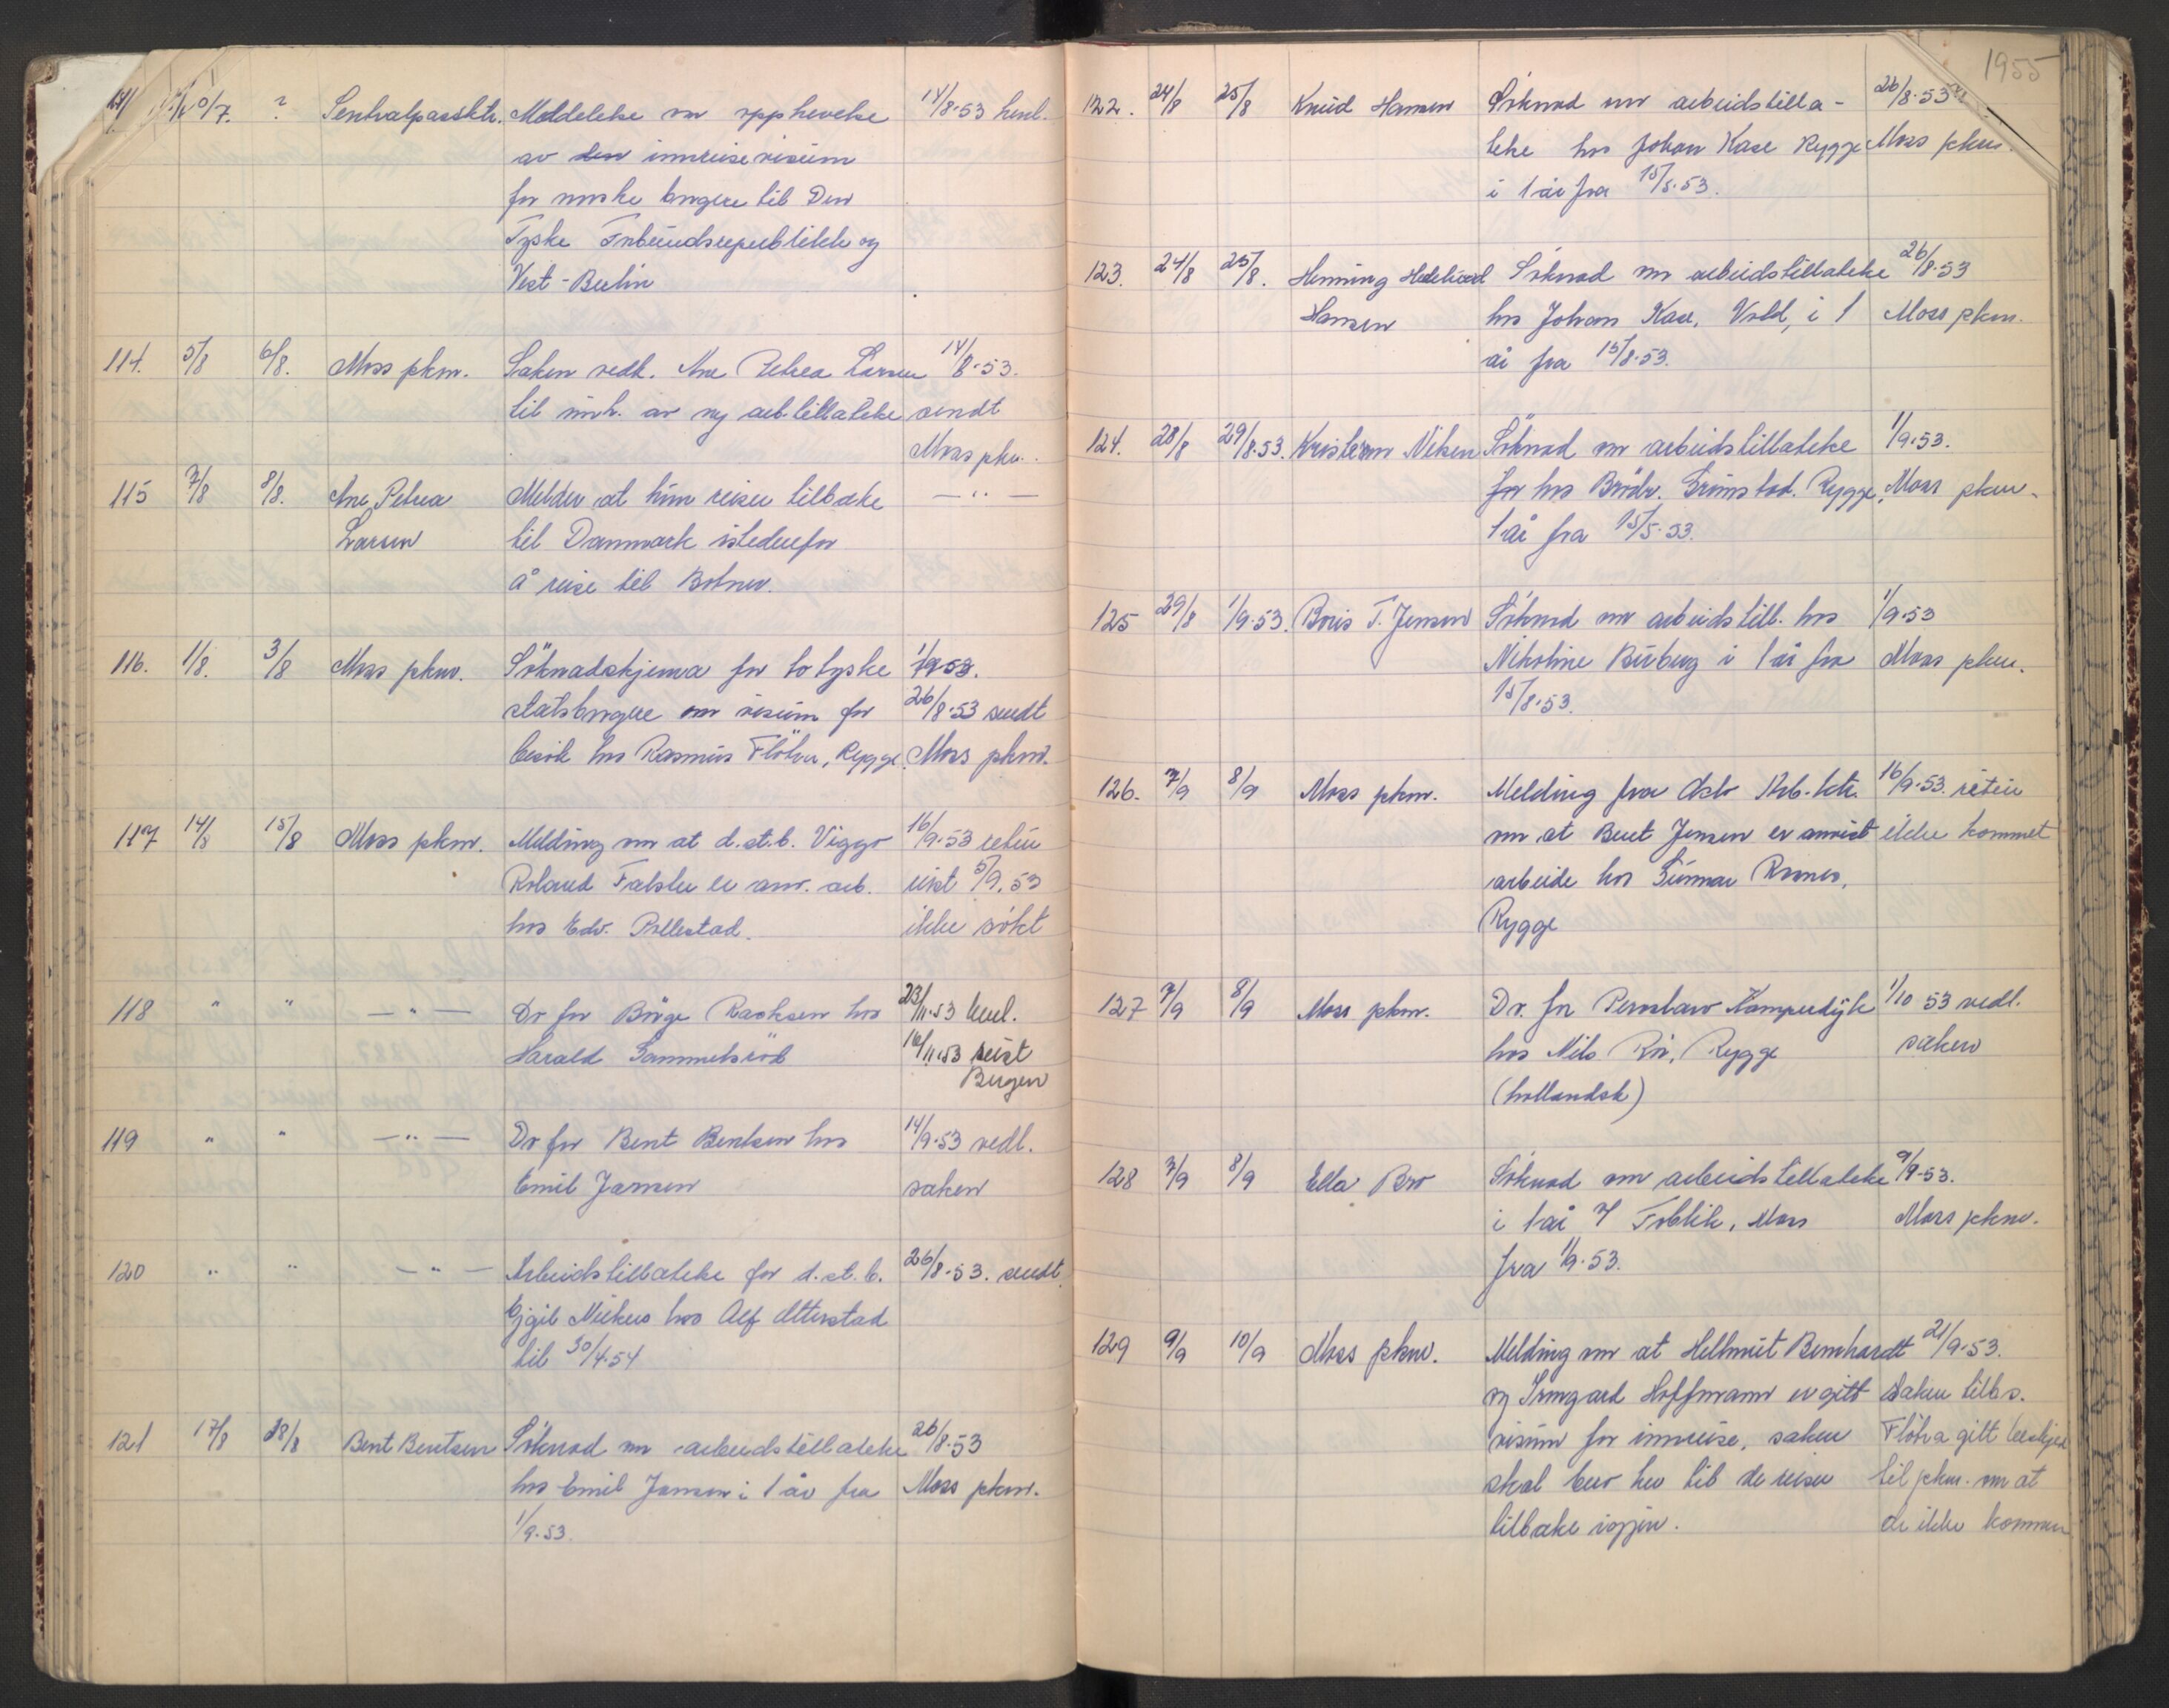 10/7. ? Sentralpassktr. Meddelelse om opphevelse 14/8-53 henl.
av den innreisevisum
for norske borgere til Den
Tyske Forbundsrepublikk og
Vest-Berlin
114. 5/8 6/8. Moss pkm. Saken vedk. Ane Petrea Larsen 14/8-53.
til innh. av ny arb.tillatelse sendt
Moss pkm.
115 7/8 8/8. Ane Petrea Melder at hun reiser tilbake — " —
Larsen til Danmark istedenfor
å reise til Botner.
116. 1/8. 3/8 Moss pkm. Söknadskjema for to tyske 1/9 53.
statsborgere om visum for 26/8-53 sendt
besök hos Rasmus Flöhra, Rygge. Moss pkm.
117 14/8 15/8 Moss pkm. Melding om at d.st.b. Viggo 16/9-53 retur
Roland Falslev er anv. arb. reist 5/9.53
hos Edv. Pollestad. ikke sökt
118 " " — " — Do for Börge Racksen hos 23/11-53 henl.
Harald Gammelsröd 16/11-53 reist
Bergen
119 " " — " — Do for Bent Bentsen hos 14/9-53 vedl.
Emil Jansen saken
120 " " — " — Arbeidstillatelse for d.st.b. 26/8-53. sendt
Ejgil Nielsen hos Alf Atterstad
til 30/4-54
121 17/8 18/8 Bent Bentsen Söknad om arbeidstillatelse 26/8-53
hos Emil Jansen i 1 år fra Moss pkm.
1/9-53.
1955
122. 24/8 25/8 Knud Hansen Söknad om arbeidstilla- 26/8-53
telse hos Johan Kase Rygge Moss pkm.
i 1 år fra 15/5-53.
123. 24/8 25/8. Henning Söknad om arbeidstillatelse 26/8-53
Hansen hos Johan Kase, Vold, i 1 Moss pkm.
år fra 15/8-53.
124. 28/8 29/8.53. Kristian Söknad om arbeidstillatelse 1/9-53.
for hos Brödr. Grimstad. Rygge, Moss pkm.
1 år fra 15/5-53.
125 29/8 1/9-53. Boris T. Jensen Söknad om arbeidstill. hos 1/9-53
Nikoline Burberg i 1 år fra Moss pkm.
15/8-53.
126. 7/9 8/9 Moss pkm. Melding fra Oslo Arb.ktr. 16/9-53. retur
om at Bent Jensen er anvist ikke kommet
arbeide hos Gunnar Romnes,
Rygge
127 7/9 8/9 Moss pkm. Do. for Kamperdijk 1/10 53 vedl.
hos Nils Roi, Rygge saken
(hollandsk)
128 7/9 8/9 Ella Bro Söknad om arbeidstillatelse 9/9-53.
i 1 år Moss Moss pkm.
fra 1/9-53.
129 9/9 10/9 Moss pkm. Melding om at Hellmut Bernhardt 21/9-53.
og Irmgard Hoffmann er gitt Saken tilb.s.
visum for innreise, saken Flöhra gitt beskjed
skal bero her til de reiser til pkm. om at
tilbake igjen. de ikke kommer